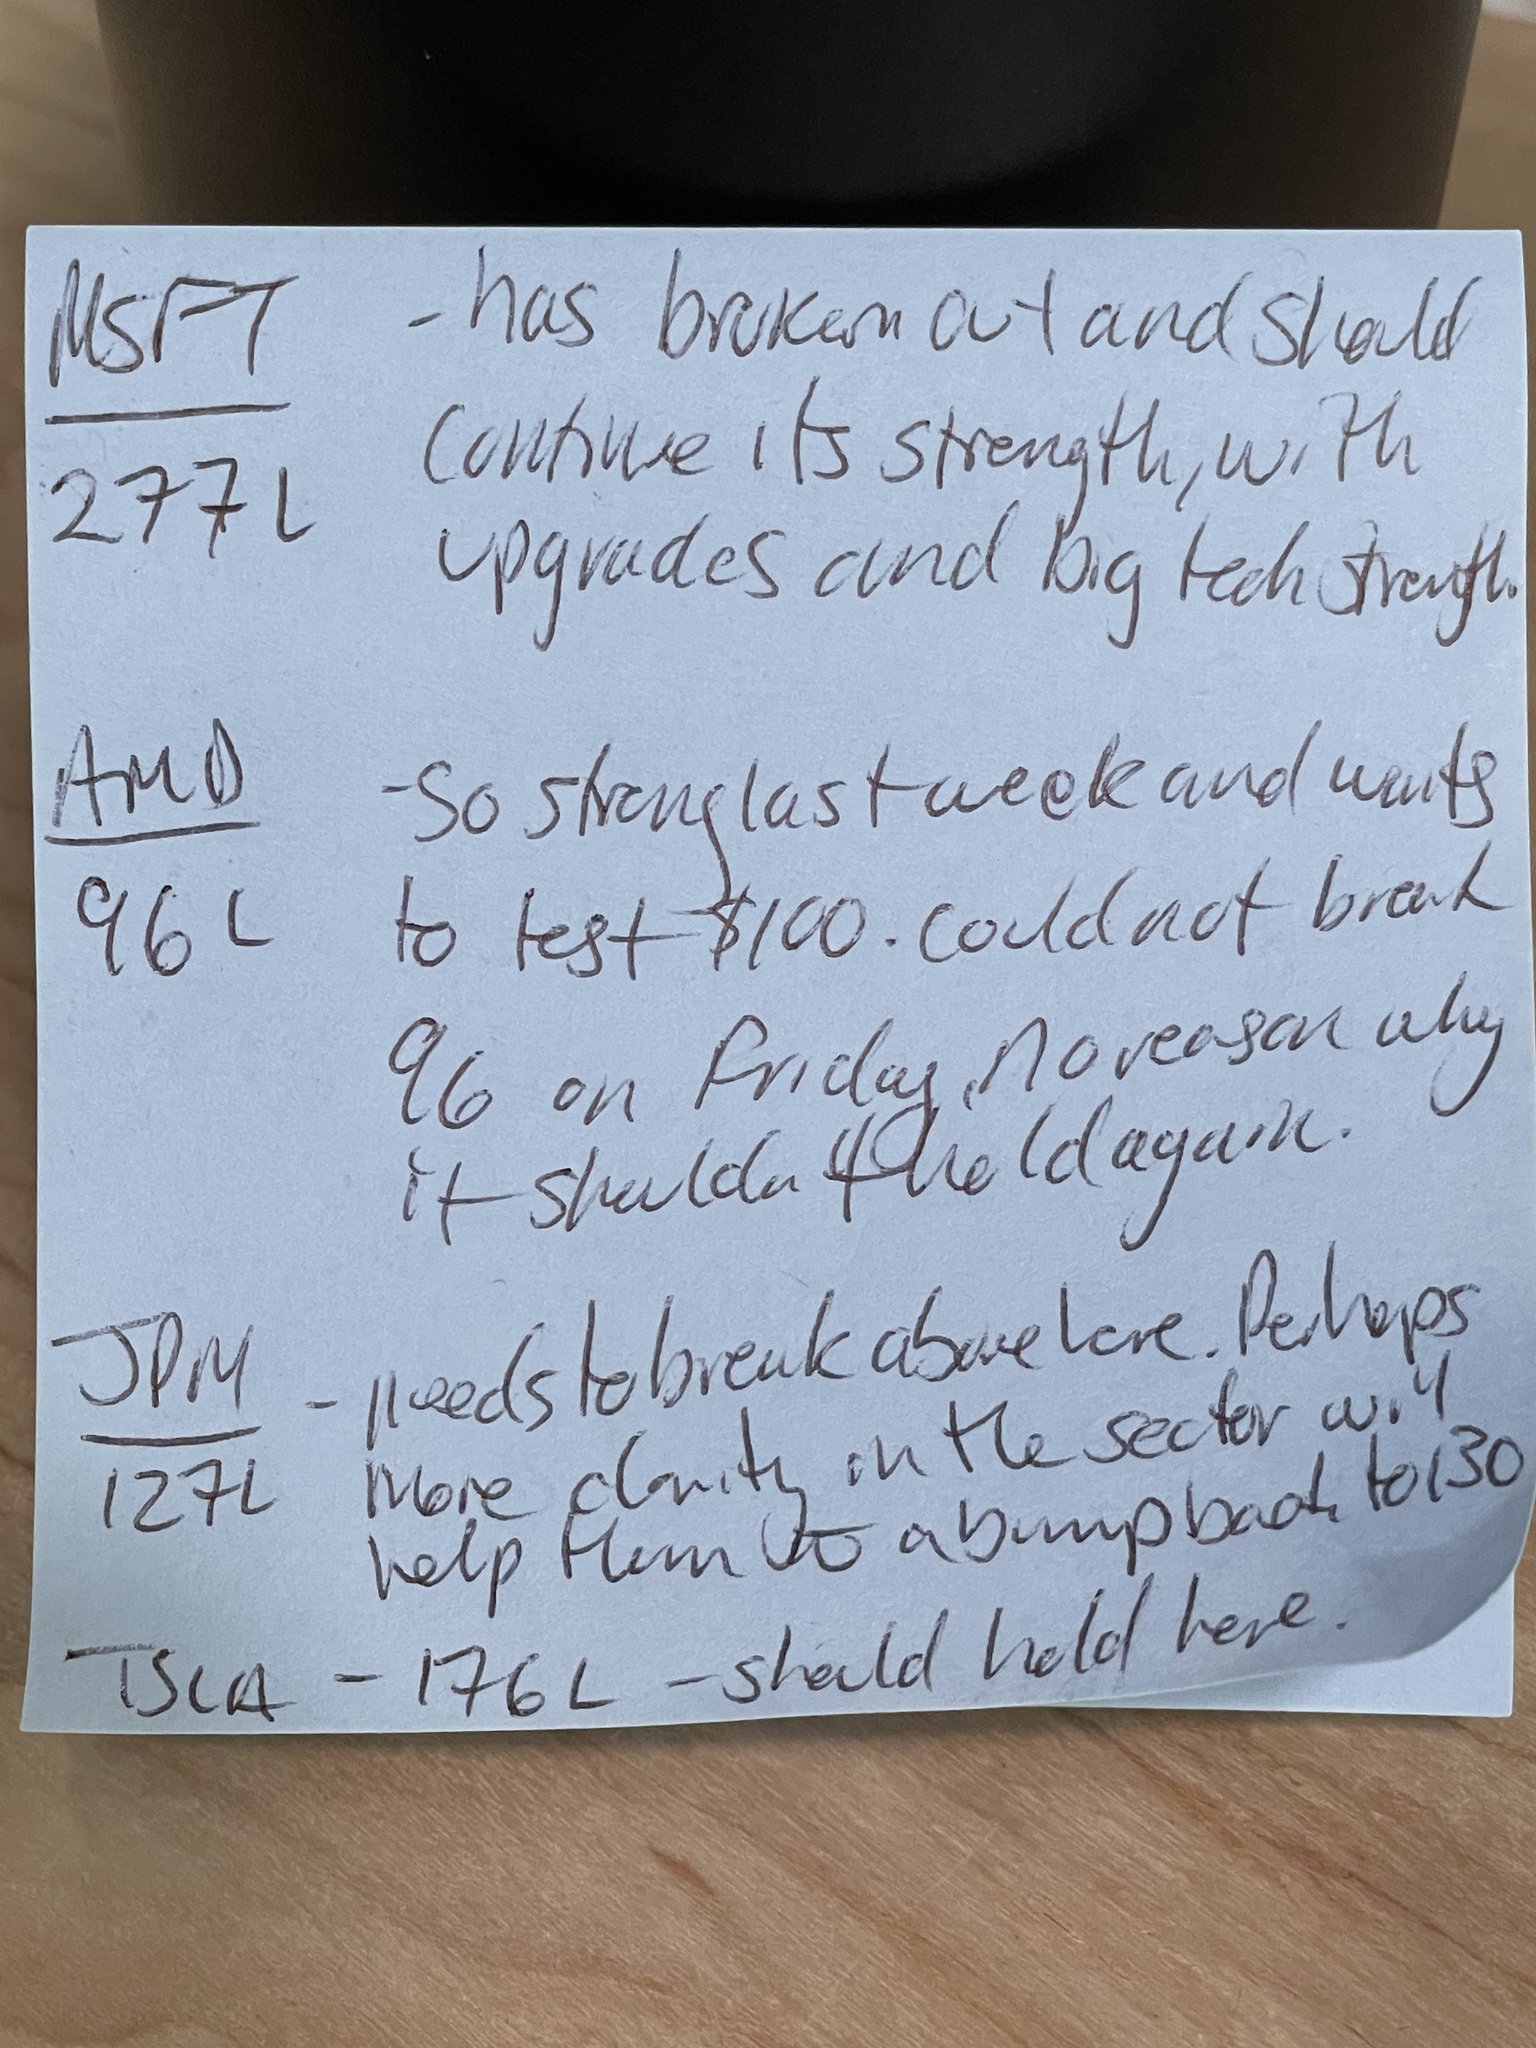 MSFT - has broken out and should
277L continue its strength, with
upgrades and big tech strength.
AMD - So strong last week and wants
96L to test $100. Could not break
96 on Friday, no reason why
it shouldn't hold again.
JPM - needs to break above here. Perhaps
127L more clarity in the sector will
help them to a bump back to 130
TSLA - 176L - should hold here.